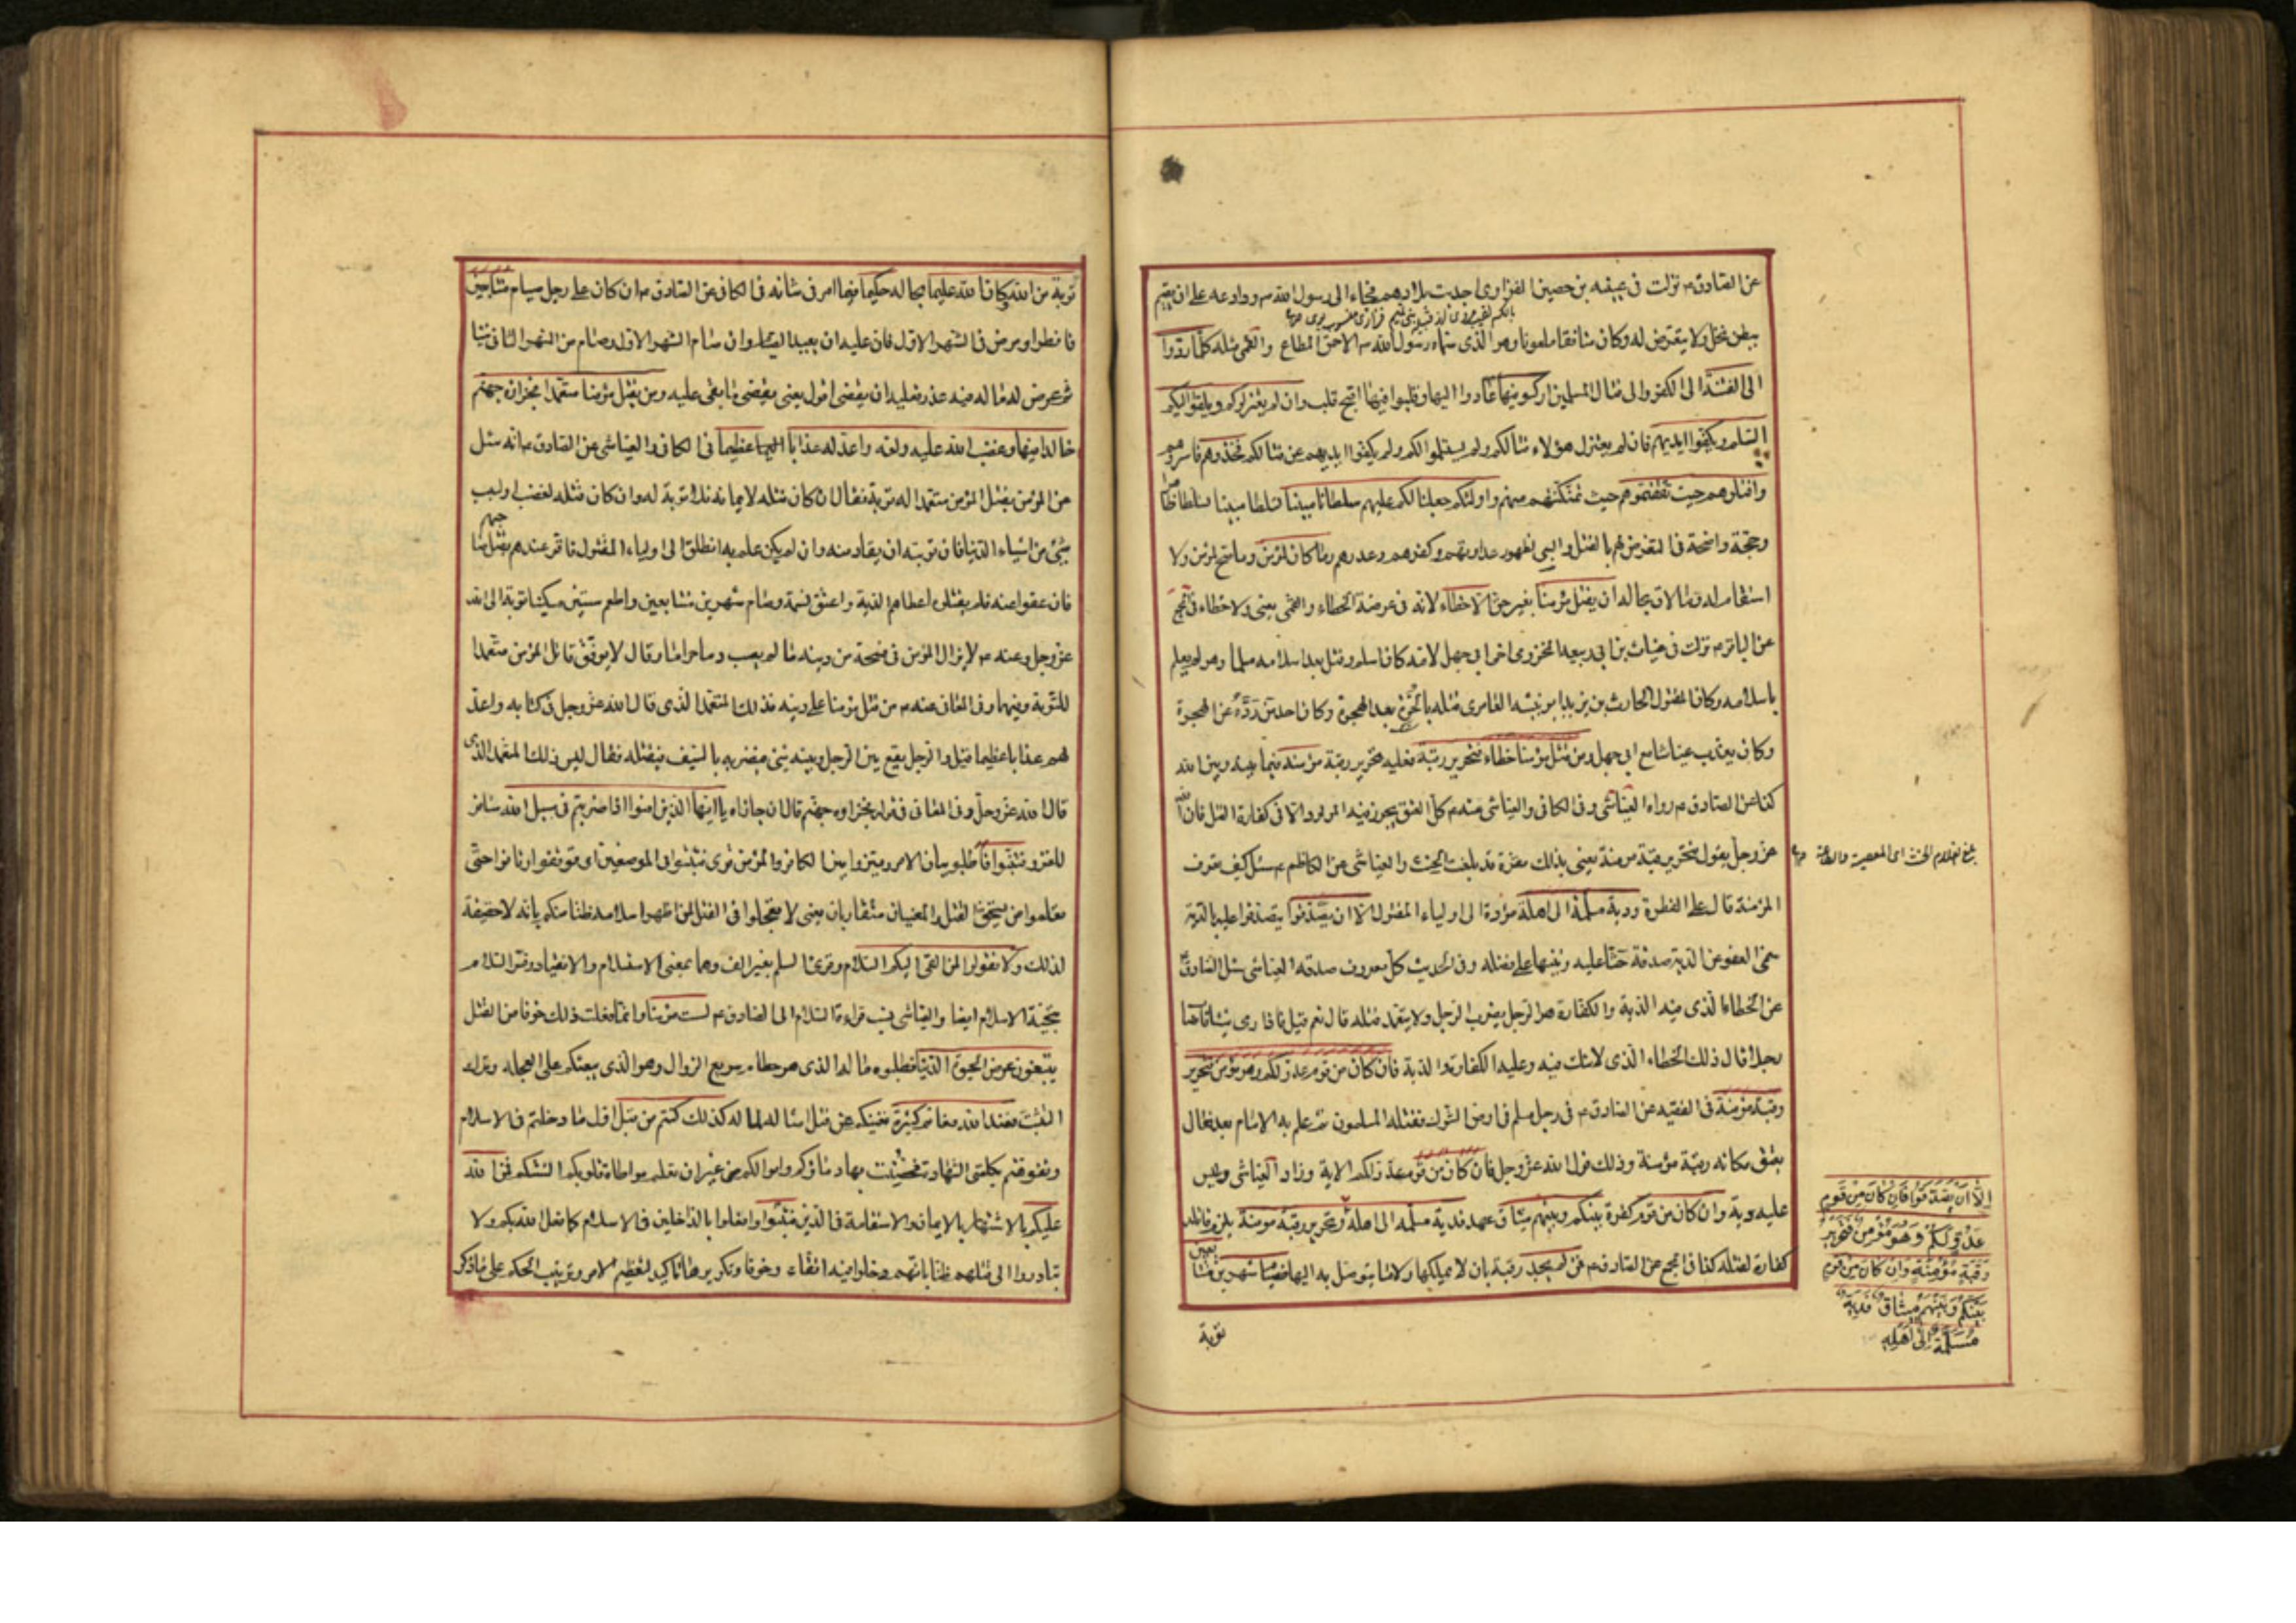 عن الصادق ع نزلت في عيينه بن حصين الفزاري اجدبت بلادهم فجاء الى رسول الله ص ووادعه على ان يقيم
ببطن نخل ولا يتعرض له وكان منافقا ملعونا وهو الذي سماه رسول الله ص الاحمق المطاع والقمي مثله كلما ردوا
الى الفتنة الى الكفر والى قتال المسلمين اركسوا فيها عادوا اليها وقلبوا فيها اقبح قلب وان لم يعتزلوكم ويلقوا اليكم
السلم ويكفوا ايديهم فان لم يعتزل هؤلاء قتالكم ولم يستسلموا لكم ولم يكفوا ايديهم عن قتالكم فخذوهم فاسروهم
واقتلوهم حيث ثقفتموهم حيث تمكنتم منهم واولئكم جعلنا لكم عليهم سلطانا مبينا تسلطا مبينا تسلطا ظاهرا
وحجة واضحة في التعرض لهم بالقتل والسبي لظهور عداوتهم وكفرهم وغدرهم وما كان لمؤمن وما صح لمؤمن ولا
استقام له وما لاق بحاله ان يقتل مؤمنا بغير حق الا خطاء لانه في عرضة الخطاء والقمي يعني ولا خطاء في المجمع
عن الباقر ع نزلت في عياش بن ابي ربيعه المخزومي اخي ابي جهل لامه كان اسلم وقتل بعد اسلامه مسلما وهو لم يعلم
باسلامه وكان المقتول الحارث بن يزيد ابو نبيشه العامري قتله بالحرة بعد الهجرة وكان احد من رده عن الهجرة
وكان يعذب عياشا مع ابي جهل ومن قتل مؤمنا خطاء فتحرير رقبة فعليه تحرير رقبة مؤمنة فيما بينه وبين الله
كذا عن الصادق ع رواه العياشي وفي الكافي والعياشي عنه ع كل العتق يجوز فيه المولود الا في كفارة القتل فان الله
عز وجل يقول فتحرير رقبة مؤمنة يعني بذلك مقرة قد بلغت الحنث والعياشي عن الكاظم ع سئل كيف تعرف
بلغ الغلام الحنث اي المعصية والطاعة
المؤمنة قال على الفطرة ودية مسلمة الى اهله مؤداة الى اولياء المقتول الا ان يصدقوا يتصدقوا عليه بالدية
سمي العفو عن الدية صدقة حثا عليه وتنبيها على فضله وفي الحديث كل معروف صدقه العياشي سئل الصادق ع
عن الخطاء الذي فيه الدية والكفارة هو الرجل يضرب الرجل ولا يتعمد قتله قال نعم قيل فاذا رمى شيئا فاصاب
رجلا قال ذلك الخطاء الذي لا شك فيه وعليه الكفارة والدية فان كان من قوم عدو لكم وهو مؤمن فتحرير
رقبة مؤمنة في الفقيه عن الصادق ع في رجل مسلم في ارض الشرك فقتله المسلمون ثم علم به الامام بعد فقال
يعتق مكانه رقبة مؤمنة وذلك قول الله عز وجل فان كان من قوم عدو لكم الاية وزاد العياشي وليس
عليه دية وان كان من قوم كفرة بينكم وبينهم ميثاق عهد فدية مسلمة الى اهله وتحرير رقبة مؤمنة يلزم قاتله
كفارة لقتله كذا في المجمع عن الصادق ع فمن لم يجد رقبة بان لا يملكها ولا ما يتوصل به اليها فصيام شهرين متتابعين
الا ان يصدقوا فان كان من قوم
عدو لكم وهو مؤمن فتحرير
رقبة مؤمنة وان كان من قوم
بينكم وبينهم ميثاق فدية
مسلمة الى اهله
توبة
توبة من الله وكان الله عليما بحاله حكيما فيما امر في شانه في الكافي عن الصادق ع ان كان على رجل صيام شهرين متتابعين
فافطر او مرض في الشهر الاول فان عليه ان يعيد الصيام وان صام الشهر الاول وصام من الشهر الثاني شيئا
ثم عرض له ما له فيه عذر فعليه ان يقضي اقول يعني يقضي ما بقي عليه ومن يقتل مؤمنا متعمدا فجزاؤه جهنم
خالدا فيها وغضب الله عليه ولعنه واعد له عذابا اليما عظيما في الكافي والعياشي عن الصادق ع انه سئل
عن المؤمن يقتل المؤمن متعمدا اله توبة فقال ان كان قتله لايمانه فلا توبة له وان كان قتله لغضب او لسبب
شيء من اشياء الدنيا فان توبته ان يقاد منه وان لم يكن علم به انطلق الى اولياء المقتول فاقر عندهم بقتل صاحبهم
فان عفوا عنه فلم يقتلوه اعطاهم الدية واعتق نسمة وصام شهرين متتابعين واطعم ستين مسكينا توبة الى الله
عز وجل وعنه ع لا يزال المؤمن في فسحة من دينه ما لم يصب دما حراما وقال لا يوفق قاتل المؤمن متعمدا
للتوبة وفيهما وفي المعاني عنه ع من قتل مؤمنا على دينه فذلك المتعمد الذي قال الله عز وجل في كتابه واعد
لهم عذابا عظيما قيل والرجل يقع بين الرجل وبينه شيء فيضربه بالسيف فيقتله فقال ليس ذلك المتعمد الذي
قال الله عز وجل وفي المعاني في قوله فجزاؤه جهنم قال ان جازاه يا ايها الذين امنوا اذا ضربتم في سبيل الله سافرتم
للغزو فتبينوا فاطلبوا بيان الامر وميزوا بين الكافر والمؤمن قرئ فتثبتوا في الموضعين اي توقفوا وتانوا حتى
تعلموا من يستحق القتل والمعنيان متقاربان يعني لا تعجلوا في القتل لمن اظهر اسلامه ظنا منكم بانه لا حقيقة
لذلك ولا تقولوا لمن القى اليكم السلام وقرئ السلم بغير الف وهما بمعنى الاستسلام والانقياد وفسر السلام
بتحية الاسلام ايضا والعياشي نسب قراءة السلام الى الصادق ع لست مؤمنا وانما فعلت ذلك خوفا من القتل
تبتغون عرض الحيوة الدنيا تطلبون ماله الذي هو حطام سريع الزوال وهو الذي يبعثكم على العجلة وترك
التثبت فعند الله مغانم كثيرة تغنيكم عن قتل امثاله لماله كذلك كنتم من قبل اول ما دخلتم في الاسلام
وتفوهتم بكلمتي الشهادة فحصنت بها دماؤكم واموالكم من غير ان يعلم مواطاة قلوبكم السنتكم فمن الله
عليكم بالاشتهار بالايمان والاستقامة في الدين فتبينوا وافعلوا بالداخلين في الاسلام كما فعل الله بكم ولا
تبادروا الى قتلهم ظنا بانهم دخلوا فيه اتقاء وخوفا وتكريره تاكيد لتعظيم الامر وترتيب الحكم على ما ذكر